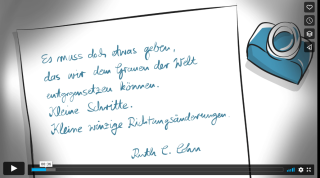 Es muss doch etwas geben,
das wir dem Grauen der Welt
entgegensetzen können.
Kleine Schritte.
Kleine winzige Richtungsänderungen
Ruth C. Cohn